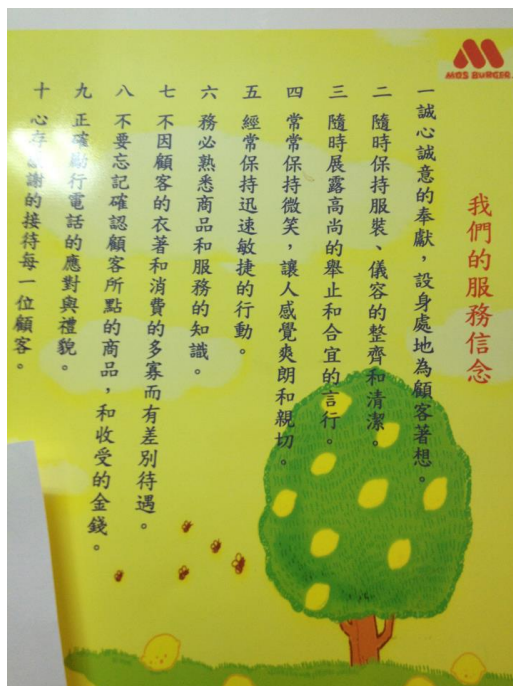 MOS BURGER
我們的服務信念
一 誠心誠意的奉獻，設身處地為顧客著想。
二 隨時保持服裝、儀容的整齊和清潔。
三 隨時展露高尚的舉止和合宜的言行。
四 常常保持微笑，讓人感覺爽朗和親切。
五 經常保持迅速敏捷的行動。
六 務必熟悉商品和服務的知識。
七 不因顧客的衣著和消費的多寡而有差別待遇。
八 不要忘記確認顧客所點的商品，和收受的金錢。
九 正確勵行電話的應對與禮貌。
十 心存謝的接待每一位顧客。